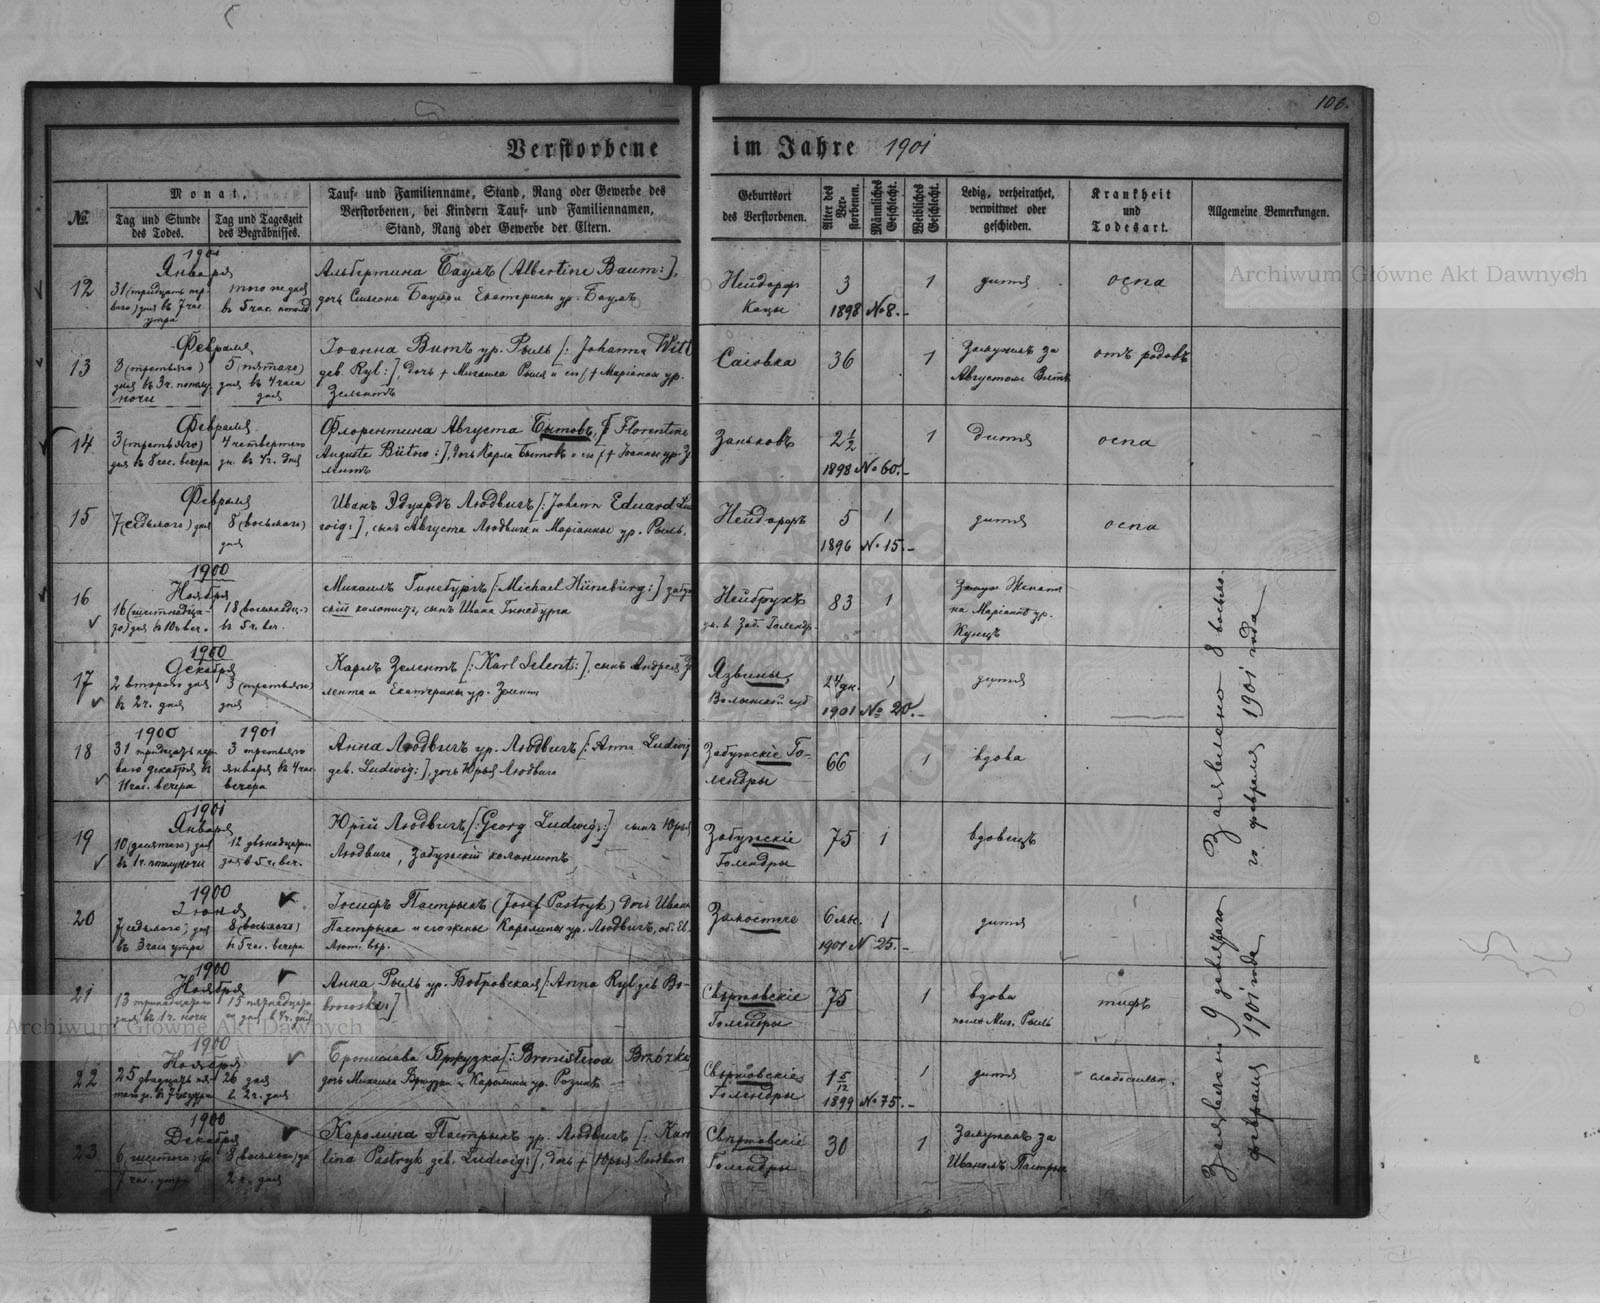 106.
Verstorbene im Jahre 1901
№
Monat,
Tag und Stunde des Todes.
Tag und Tageszeit des Begräbnisses.
Tauf- und Familienname, Stand, Rang oder Gewerbe des
Verstorbenen, bei Kindern Tauf- und Familiennamen,
Stand, Rang oder Gewerbe der Eltern.
Geburtsort
des Verstorbenen.
Alter des Ver-
storbenen.
Männliches
Geschlecht.
Weibliches
Geschlecht.
Ledig, verheirathet,
verwittwet oder
geschieden.
Krankheit
und
Todesart.
Allgemeine Bemerkungen.
12
1901
Января
31 (тридцать пер-
ваго) дня въ 7 час.
утра
того же дня
въ 5 час. пополд.
Альбертина Баумъ (Albertine Baum:],
дочь Симеона Баума и Екатерины ур. Баумъ
Нейдорфъ
3
1
дитя
оспа
1898 № 8.-
13
Февраля
3 (третьяго)
дня въ 3 ч. полу-
ночи
5 (пятаго)
дня въ 4 часа
дня
Іоанна Витъ ур. Рыль [: Johanna Witt
geb. Ryl:], дочь + Михаила Рыля и его [+ Маріанны ур.
Зелентъ
Саіовка
36
1
Замужемъ за
Августомъ Витъ
отъ родовъ
14
Февраля
3 (третьяго)
дня въ 8 час. вечера
4 четвертаго
дн. въ 4 ч. дня
Флорентина Августа Бытовъ, [: Florentine
Auguste Bütow:], дочь Карла Бытовъ и его [+ Іоанны ур. З
лентъ
Заньковъ
2 1/2
1
дитя
оспа
1898 № 60.-
15
Февраля
7 (седьмого) дня
8 (восьмого)
дня
Иванъ Эдуардъ Людвигъ [: Johann Eduard Lud
wig:], сынъ Августа Людвига и Маріанны ур. Рыль.
Нейдорфъ
5
1
дитя
оспа
1896 № 15.-
16
1900
Ноября
16 (шестнадца-
го) дня въ 10 ч. веч.
18 (восьмнадц.)
въ 5 ч. веч.
Михаилъ Гинебургъ [: Michael Hüneburg:] забуж
скій колонистъ, сынъ Ивана Гинебурга
Нейбрухъ
83
1
Женат
на Маріаннѣ ур.
Кунцъ
17
1900
Декабря
2 второго дня
въ 2 ч. дня
3 (третьяго)
дня
Карлъ Зелентъ [: Karl Selent:], сынъ Андрея З
лента и Екатерины ур. Зелент
Язвины,
Волынской губ
24 дн.
1
дитя
1901 № 20.-
18
1900
31 тридцать пер
ваго декабря въ
11 час. вечера
1901
3 третьяго
января въ 4 час.
вечера
Анна Людвигъ ур. Людвигъ [: Anna Ludwig
geb. Ludwig:], дочь Юрья Людвига
Забужскіе Го-
лендры
66
1
вдова
19
1901
Января
10 (десятаго) дня
въ 1 ч. полуночи
12 двѣнадцатаго
дня въ 5 ч. веч.
Юрій Людвигъ [: Georg Ludwig:] сынъ Юрья
Людвига, Забужскій колонистъ
Забужскіе
Голендры
75
1
вдовецъ
20
1900
Іюня
7 (седьмого) дня
въ 3 часа утра
8 (восьмого)
въ 5 час. вечера
Іосифъ Пастрыкъ (Josef Pastryk) Ивана
Пастрыка и его жены Каролины ур. Людвигъ, об. Ев.
Лют. вѣр.
Замостече
6 мѣс.
1
дитя
1901 № 25.-
21
1900
Ноября
13 тринадцатаго
дня въ 1 ч. ночи
15 пятнадцата
го дня въ 4 ч. дня
Анна Рыль ур. Бобровская [: Anna Ryl geb Bo-
browska:]
Свѣржовскіе
Голендры
75
1
вдова
послѣ Мих. Рыль
тифъ
22
1900
Ноября
25 двадцать пя-
таго д. въ 7 ч. утра
26 дня
въ 2 ч. дня
Бронислава Бржузка [: Bronisława Brzózka
дочь Михаила Бржузки и Каролины ур. Розинъ
Свѣржовскіе
Голендры
1 5/12
1
дитя
1899 № 75.-
23
1900
Декабря
6 (шестого) дн
7 час. утра
8 (восьмого) дн
2 ч. дня
Каролина Пастрыкъ ур. Людвигъ [: Karo
lina Pastryk geb. Ludwig:], дочь + Юрья Людвига
Свѣржовскіе
Голендры
30
1
Замужемъ за
Иваномъ Пастрык
Заявлено 8 восьмо-
го февраля 1901 года
Заявлено 9 девятаго
февраля 1901 года
Archiwum Główne Akt Dawnych
Archiwum Główne Akt Dawnych